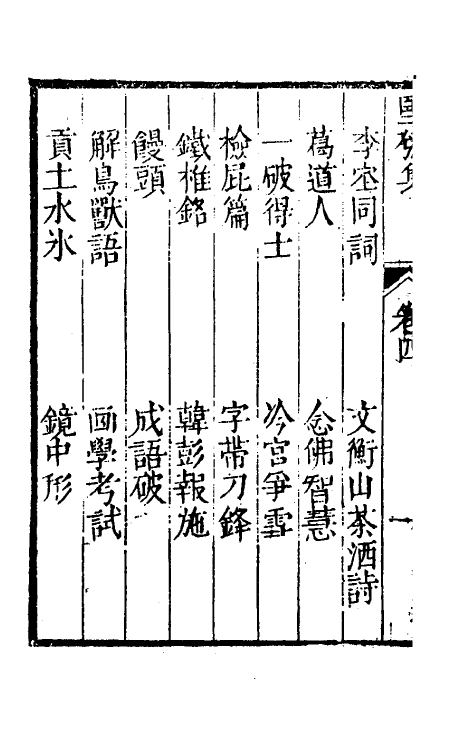 李空同詞　文衡山茶酒詩
葛道人　念佛智慧
一破得士　冷宮爭雪
檢屁篇　字帶刀鋒
鐵椎銘　韓彭報施
饅頭　成語破
解鳥獸語　画學考試
貢士水氷　鏡中形
卷四
一